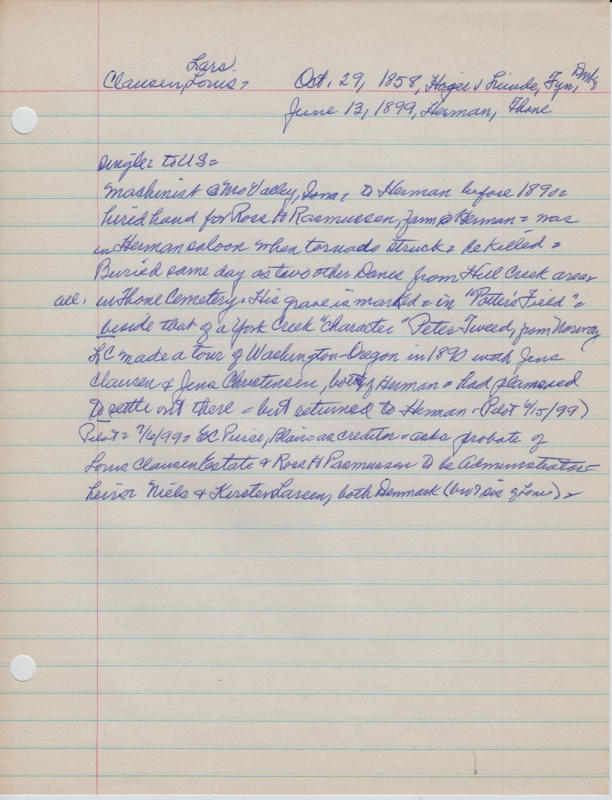 Lars
Clausen, Louis, Oct. 29, 1858, Fyn, Dmk
June 13, 1899, Herman, Thone
single to US =
machinist @ Mo Valley, Iowa, to Herman before 1890 =
hired hand for Ross H Rasmussen, farm @ Herman = was
in Herman saloon when tornado struck = he killed =
Buried same day as two other Danes from Hill Creek area =
acc. in Thone Cemetery. His grave is marked = in "Potter's Field" =
beside that of a York Creek "character" Peter Tweed, from Norway
LC made a tour of Washington-Oregon in 1890 with Jens
Clausen & Jens Christensen, both of Herman = had planned
to settle out there = but returned to Herman - (Pilot 6/15/99)
Pilot = 7/6/99 = EC Pierce, Blair = as creditor = asks probate of
Louis Clausen Estate & Ross H Rasmussen to be Administrator =
heirs: Niels & Kirsten Larsen, both Denmark (bro & sis of Louis) =